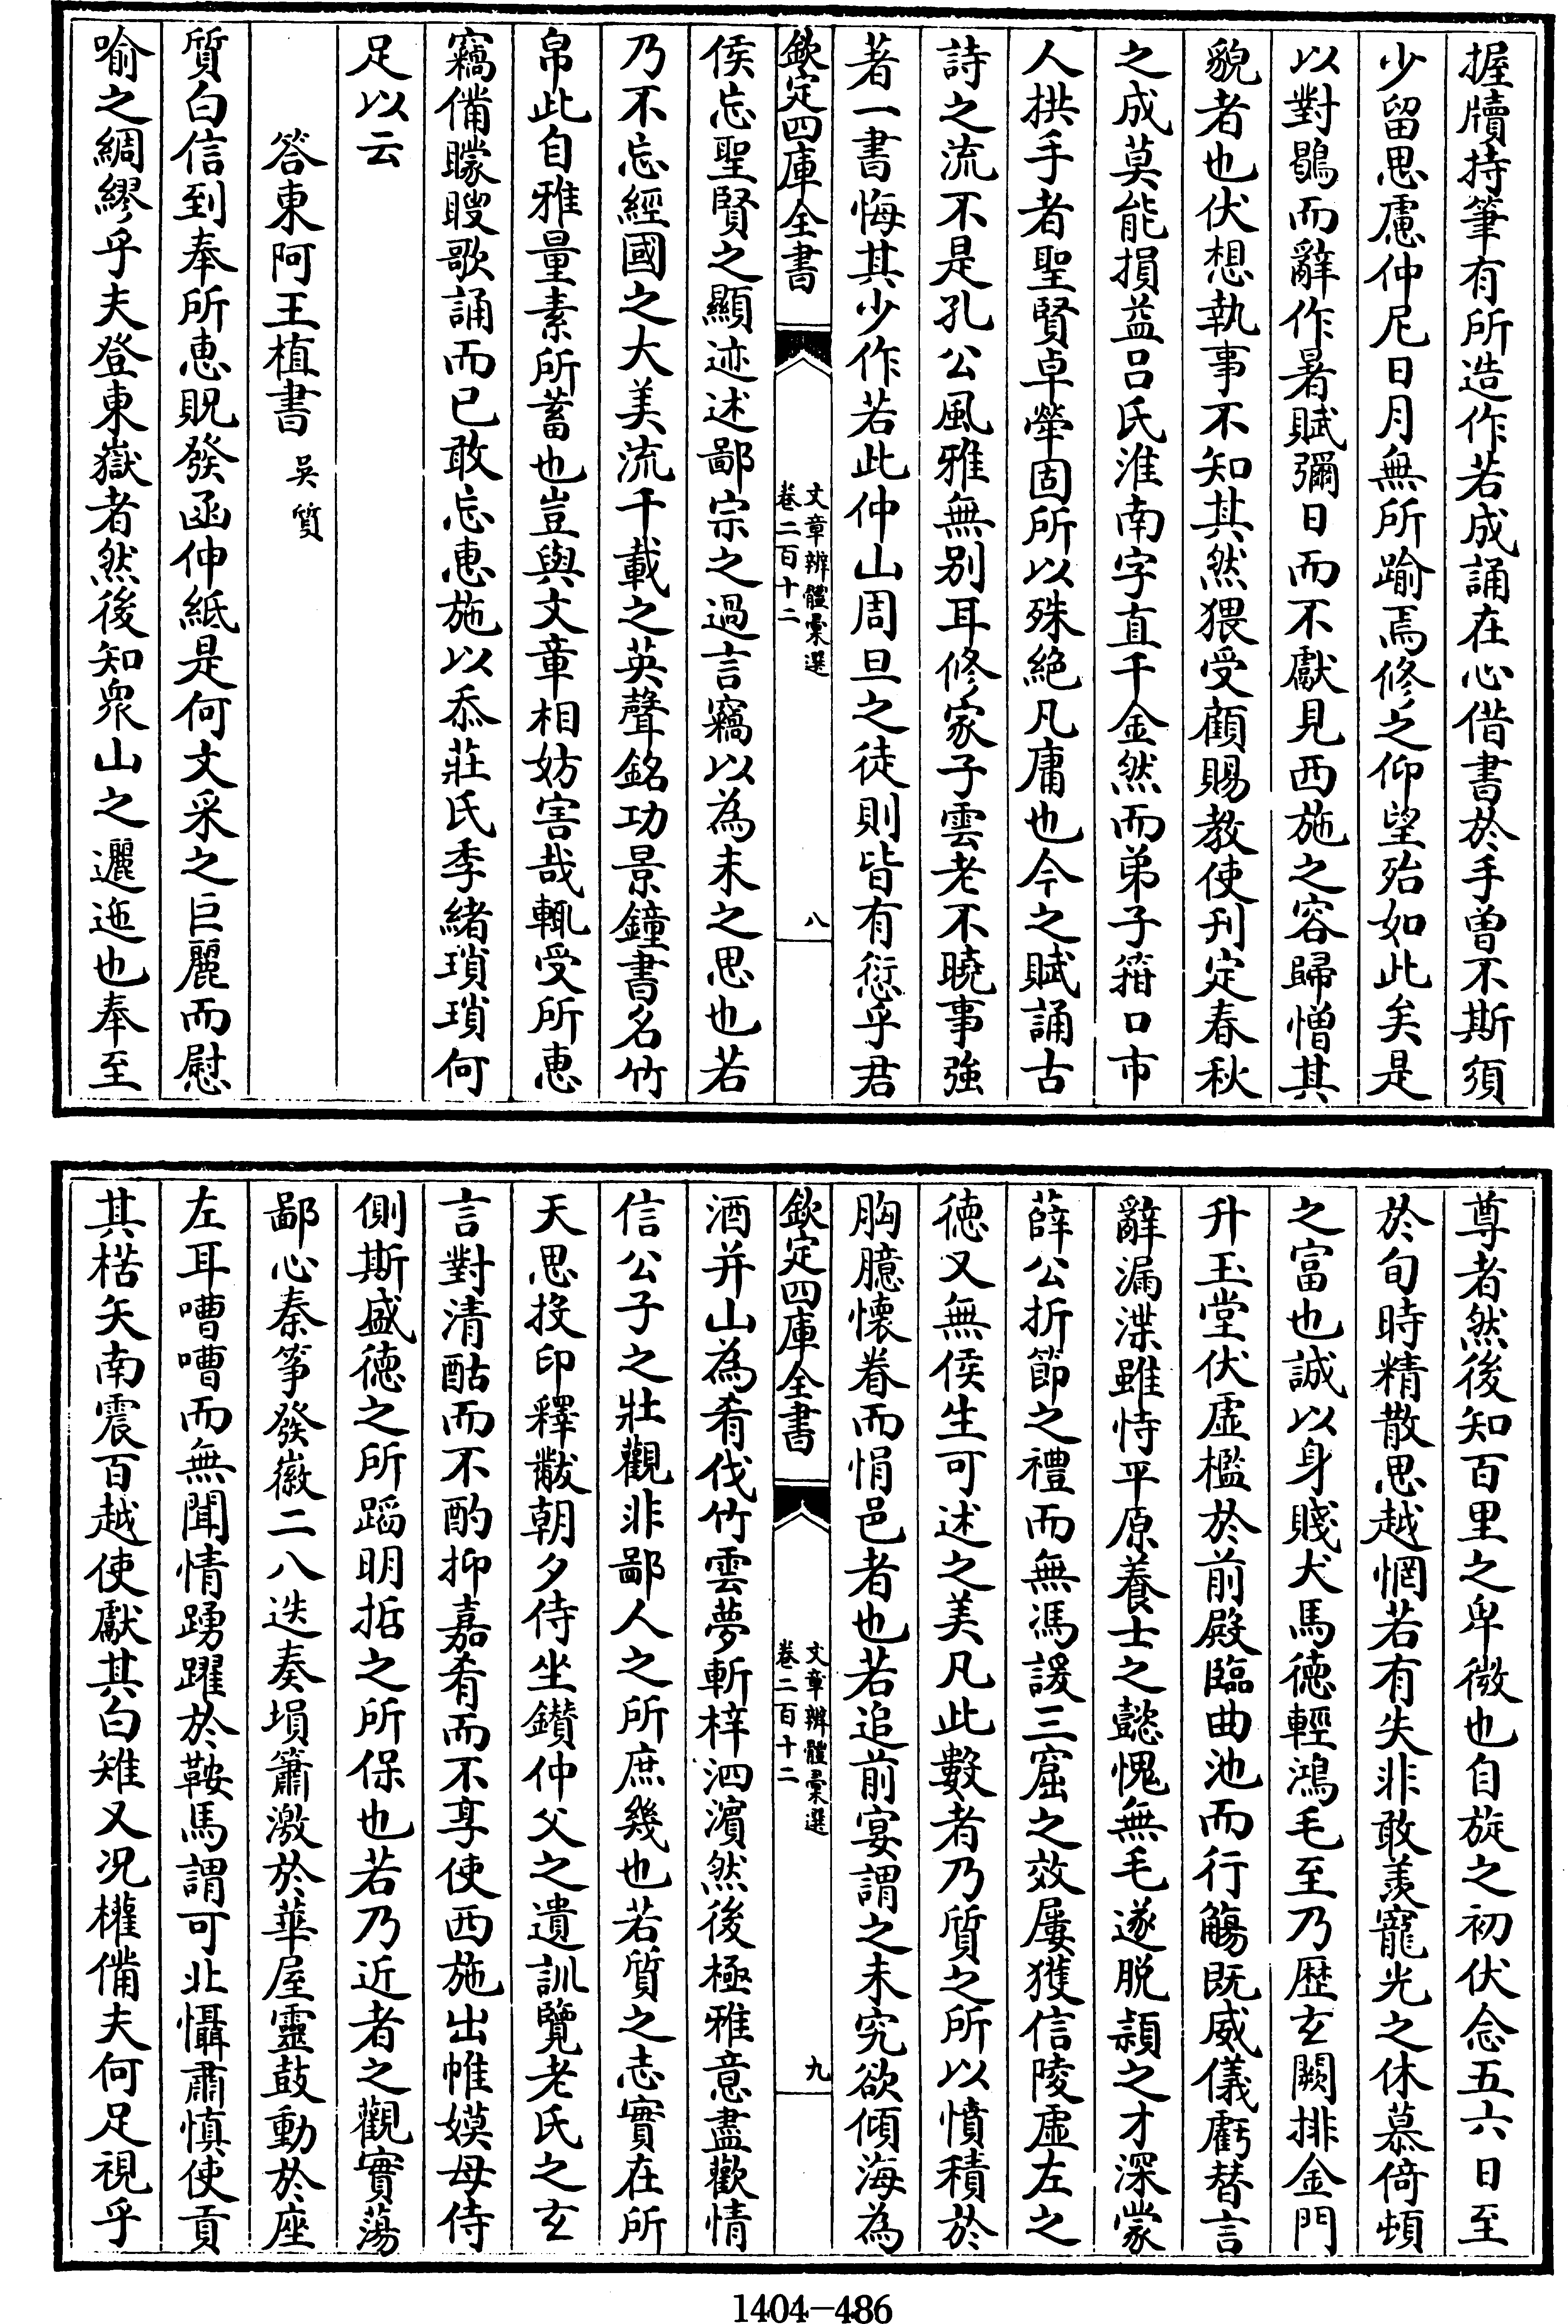 握牘持筆有所造作若成誦在心借書於手曽不斯須
少留思慮仲尼日月無所踰焉修之仰望殆如此矣是
以對鶡而辭作暑賦彌日而不獻見西施之容歸憎其
貌者也伏想執事不知其然猥受顧賜教使刋定春秋
之成莫能損益吕氏淮南字直千金然而弟子箝口市
人拱手者聖賢卓犖固所以殊絶凡庸也今之賦誦古
詩之流不是孔公風雅無别耳修家子雲老不曉事強
著一書悔其少作若此仲山周旦之徒則皆有愆乎君
欽定四庫全書
文章辨體彚選
卷二百十二
八
侯忘聖賢之顯迹述鄙宗之過言竊以為未之思也若
乃不忘經國之大美流千載之英聲銘功景鐘書名竹
帛此自雅量素所蓄也豈與文章相妨害哉輒受所惠
竊備矇瞍歌誦而已敢忘惠施以忝莊氏季緒瑣瑣何
足以云
答東阿王植書 吳質
質白信到奉所惠貺發函伸紙是何文采之巨麗而慰
喻之綢繆乎夫登東嶽者然後知衆山之邐迤也奉至
尊者然後知百里之卑微也自旋之初伏念五六日至
於旬時精散思越惘若有失非敢羡寵光之休慕倚頓
之富也誠以身賤犬馬徳輕鴻毛至乃歴玄闕排金門
升玉堂伏虚檻於前殿臨曲池而行觴既威儀虧替言
辭漏渫雖恃平原養士之懿愧無毛遂脱頴之才深蒙
薛公折節之禮而無馮諼三窟之效屢獲信陵虚左之
徳又無侯生可述之美凡此數者乃質之所以憤積於
胸臆懐眷而悁邑者也若追前宴謂之未究欲傾海為
欽定四庫全書
文章辨體彚選
卷二百十二
九
酒并山為肴伐竹雲夢斬梓泗濵然後極雅意盡歡情
信公子之壯觀非鄙人之所庶幾也若質之志實在所
天思投印釋黻朝夕侍坐鑽仲父之遺訓覽老氏之玄
言對清酤而不酌抑嘉肴而不享使西施出帷嫫母侍
側斯盛徳之所蹈明哲之所保也若乃近者之觀實蕩
鄙心秦筝發徽二八迭奏塤簫激於華屋靈鼓動於座
左耳嘈嘈而無聞情踴躍於鞍馬謂可北懾肅慎使貢
其楛矢南震百越使獻其白雉又况權備夫何足視乎
1404-486